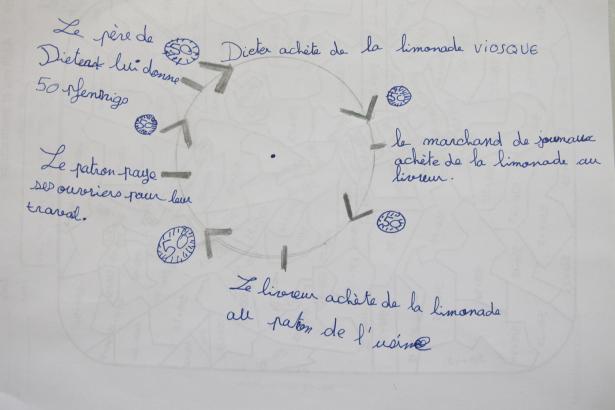 Le père de
Dieter lui donne
50 Pfennigs
50
Dieter achète de la limonade VIOSQUE
50
le marchand de journaux
achète de la limonade au
livreur.
50
Le livreur achète de la limonade
au patron de l'usine
50
Le patron paye
ses ouvriers pour leur
travail.
50